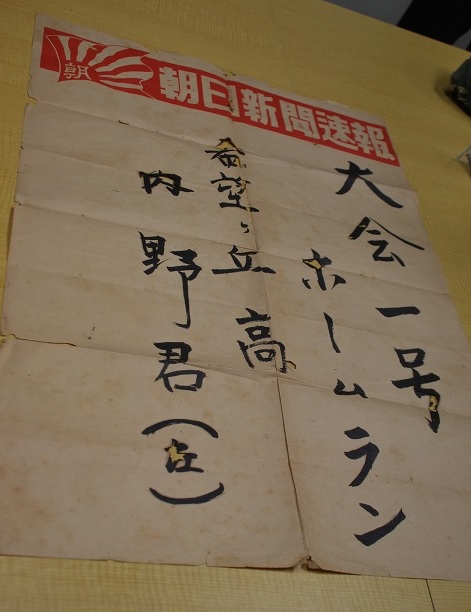 朝
朝日新聞速報
大会一号
ホームラン
希望ヶ丘高
内野君(左)